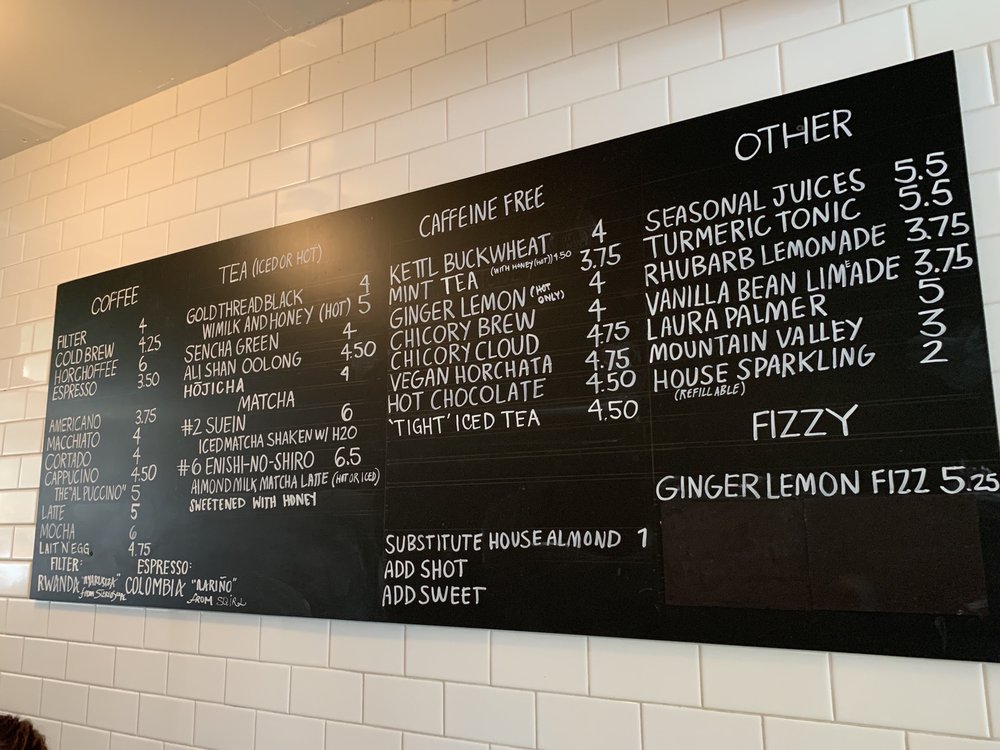 COFFEE
FILTER 4
COLD BREW 4.25
HORCHOFFEE 6
ESPRESSO 3.50
AMERICANO 3.75
MACCHIATO 4
CORTADO 4
CAPPUCINO 4.50
THE "AL PUCCINO" 5
LATTE 5
MOCHA 6
LAIT 'N EGG 4.75
FILTER:
RWANDA
from
ESPRESSO:
COLOMBIA "NARIÑO"
FROM SQIRL
TEA (ICED OR HOT)
GOLD THREAD BLACK 4
W/MILK AND HONEY (HOT) 5
SENCHA GREEN 4
ALI SHAN OOLONG 4.50
HŌJICHA 4
MATCHA
#2 SUEIN 6
ICED MATCHA SHAKEN W/ H2O
#6 ENISHI-NO-SHIRO 6.5
ALMOND MILK MATCHA LATTE (HOT OR ICED)
SWEETENED WITH HONEY
CAFFEINE FREE
KETTL BUCKWHEAT 4
MINT TEA (WITH HONEY (HOT)) 4.50 3.75
GINGER LEMON (HOT ONLY) 4
CHICORY BREW 4
CHICORY CLOUD 4.75
VEGAN HORCHATA 4.75
HOT CHOCOLATE 4.50
'TIGHT' ICED TEA 4.50
SUBSTITUTE HOUSE ALMOND 1
ADD SHOT
ADD SWEET
OTHER
SEASONAL JUICES 5.5
TURMERIC TONIC 5.5
RHUBARB LEMONADE 3.75
VANILLA BEAN LIMEADE 3.75
LAURA PALMER 5
MOUNTAIN VALLEY 3
HOUSE SPARKLING 2
(REFILLABLE)
FIZZY
GINGER LEMON FIZZ 5.25